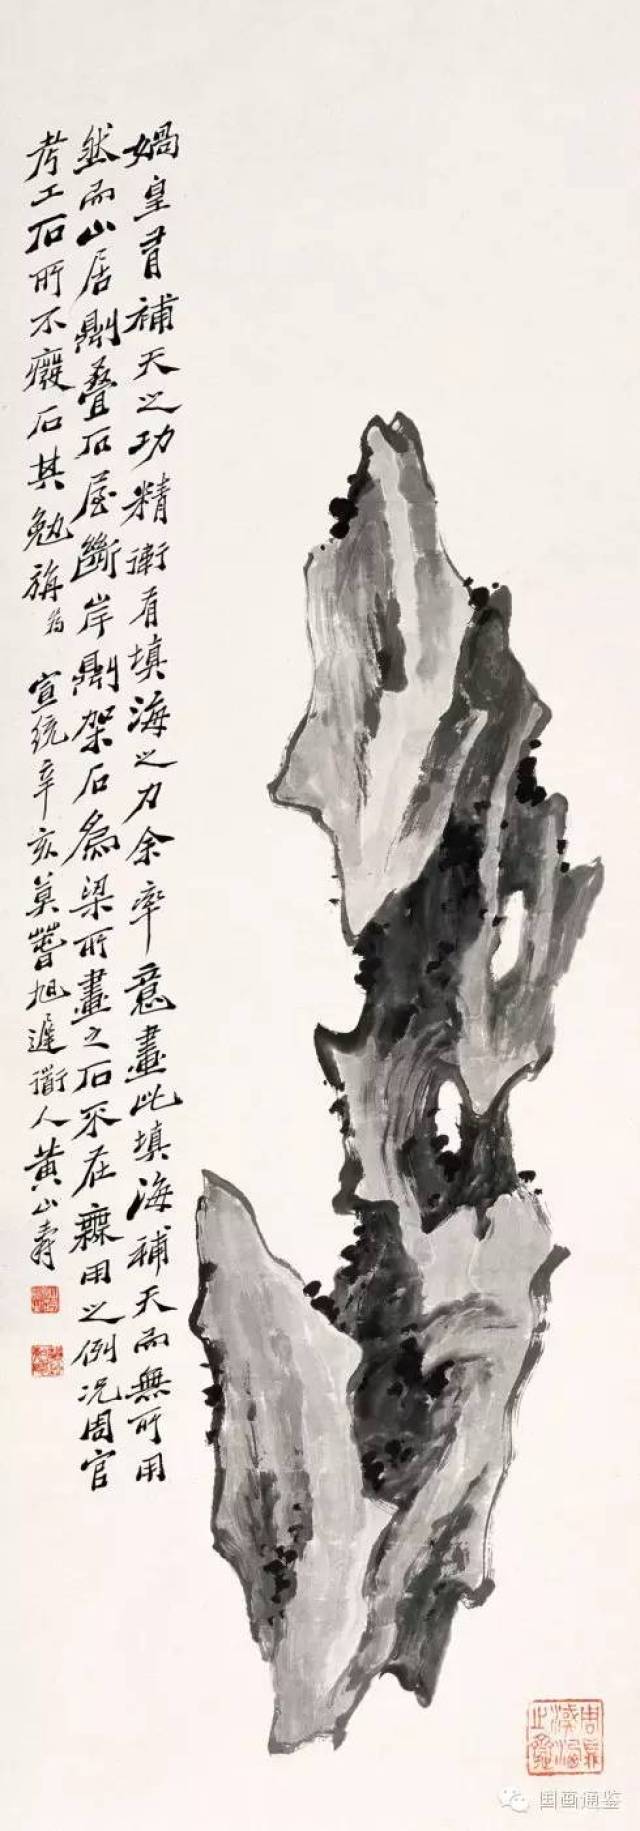 媧皇有補天之功精衛有填海之力余率意畫此填海補天而無所用
然而山居則叠石屋斷岸則架石為梁所畫之石不在無用之例况周官
考工石所不癈石其勉旃 宣統辛亥莫春旭遲衟人黄山壽
国画通鉴